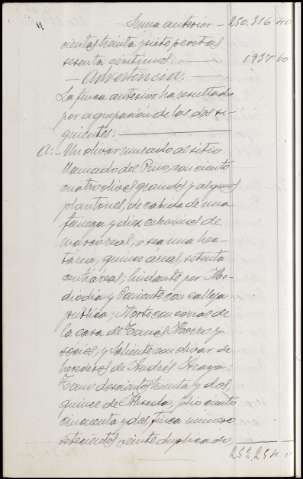 Suma anterior — 250.316 40
cientas treinta y siete pesetas
sesenta centimos 1937 60
— Advertencia: —
La finca anterior ha resultado
por agrupación de las dos si-
guientes:
A: Un olivar cercado al sitio
llamado del Pino, con ciento
cuatro olivos grandes y algunos
plantones, de cabida de una
fanega y diez celemines de
marco real, o sea una hec-
tarea, quince areas, setenta
centiareas; lindante por Me-
diodia y Poniente con calleja
publica; Norte con
la casa de y
y Saliente con olivar de
herederos de Andrés
Tomo doscientos treinta y dos,
quince de folio ciento
cincuenta y dos, finca numero
setecientos veinte duplicado